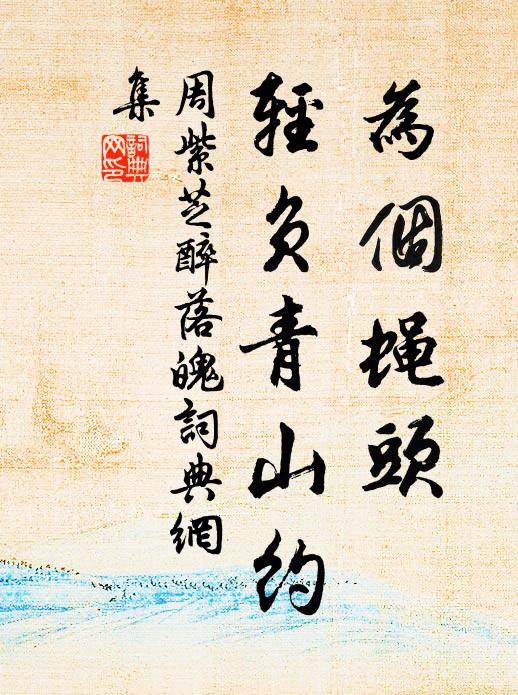 為個蝇頭
輕負青山約
周紫芝醉落魄詞典網
集
詞典網印